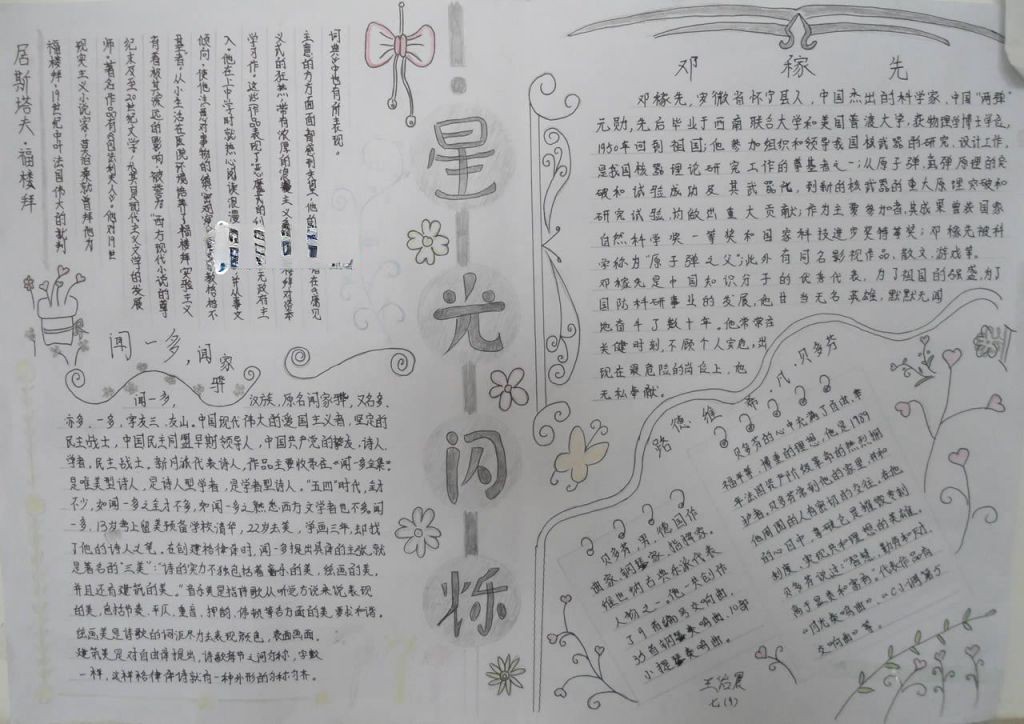 星光闪烁
居斯塔夫·福楼拜
福楼拜,19世纪中叶法国伟大的批判
现实主义小说家,莫泊桑就曾拜他为
师。著名作品有《包法利夫人》。他对19世
纪末及至20世纪文学,尤其是现代主义文学的发展
有着极其深远的影响,被誉为“西方现代小说的奠
基者”。从小生活在医院环境培养了福楼拜实验主义
倾向,使他注意对事物的
入。他在上中学时就热心阅读浪漫
学习作。这些作品表现了
义式的狂热,带有浓厚的浪漫主义
主意的方方面面都感到失望,他的
词典中也有所表现。
闻一多,闻家骅
闻一多, 汉族,原名闻家骅,又名多、
亦多、一多,字友三、友山。中国现代伟大的爱国主义者,坚定的
民主战士,中国民主同盟早期领导人,中国共产党的挚友,诗人、
学者、民主战士。新月派代表诗人,作品主要收录在《闻一多全集》
是唯美型诗人,是诗人型学者,是学者型诗人。“五四”时代,全才
不少,如闻一多之全才不多,如闻一多之熟悉西方文学者也不多。闻
一多,13岁考上留美预备学校清华,22岁去美,学画三年,却找
了他的诗人之笔。在创建格律诗时,闻一多提出具体的主张,就
是著名的“三美”:“诗的实力不独包括着音乐的美,绘画的美,
并且还有建筑的美。”音乐美是指诗歌从听觉方说来说表现
的美,包括节奏、平仄、重音、押韵、停顿等各方面的美,要求和谐。
绘画美是诗歌的词汇尽力去表现颜色,表画画面。
建筑美是对自由体提出,诗歌每节之间匀称,字数
一样,这样格律体诗就有一种外形的匀称均齐。
邓稼先
邓稼先,安徽省怀宁县人,中国杰出的科学家,中国“两弹”
元勋,先后毕业于西南联合大学和美国普渡大学,获物理学博士学位。
1950年回到祖国;他参加组织和领导我国核武器的研究、设计工作,
是我国核器理论研究工作的奠基者之一;从原子弹、氢弹原理的突
破和试验成功及其武器化,到新的核武器的重大原理突破和
研究试验,均做出重大贡献;作为主要参加者,其成果曾获国家
自然科学奖一等奖和国家科技进步奖特等奖;邓稼先被科
学称为“原子弹之父”;此外有同名影视作品、散文、游戏等。
邓稼先是中国知识分子的优秀代表,为了祖国的强盛,为了
国防科研事业的发展,他甘当无名英雄,默默无闻
地奋斗了数十年。他常常在
关键时刻,不顾个人安危,出
现在最危险的岗位上,他
无私奉献。
路德维希·凡·贝多芬
贝多芬,男,德国作
曲家、钢琴家、指挥家。
维也纳古典乐派代表
人物之一。他一共创作
了9首编号交响曲、
35首钢琴奏鸣曲、10部
小提琴奏鸣曲。
贝多芬的心中充满了自由、幸
福平等、博爱的理想,他是1789
年法国资产阶级革命的热烈拥
护者,贝多芬常到他的家里,并和
他周围的人有密切的交往。在他
的心目中,拿破仑是摧毁专制
制度、实现共和理想的英雄。
贝多芬说过:“智慧、勤劳和天才,
高于显贵和富有。”代表作品有
《月光奏鸣曲》、《C小调第5
交响曲》等。
王治
七(9)